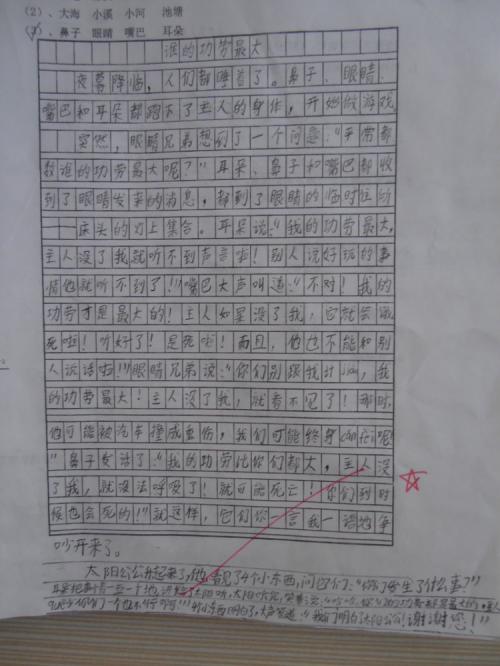 (2)、大海 小溪 小河 池塘
(3)、鼻子 眼睛 嘴巴 耳朵
谁的功劳最大
夜幕降临,人们都睡着了。鼻子、眼睛、
嘴巴和耳朵都跑下了主人的身体,开始做游戏
突然,眼睛兄弟想到了一个问题:“平常都
数谁的功劳最大呢?”耳朵、鼻子和嘴巴都收
到了眼睛发来的消息,都到了眼睛的临时住所
——床头的灯上集合。耳朵说:“我的功劳最大,
主人没了我就听不到声音啦!别人说好玩的事
情他就听不到了!”嘴巴大声叫道:“不对!我的
功劳才是最大的!主人如果没了我,它就会饿
死啦!听好了!是死啦!而且,他也不能和别
人说话啦!”眼睛兄弟说:“你们别跟我计jiào,我
的功劳最大!主人没了我,就看不见了!那时,
他可能被汽车撞成重伤,我们可能终身cán疾呢!
”鼻子发话了:“我的功劳比你们都大,主人没
了我,就没法呼吸了!就可能死亡!你们到时
候也会死的!”就这样,它们你一言我一语地争
吵开来了。
太阳公公升起来了,他看见了4个小东西,问它们:“你们发生了什么事?”
耳朵把事情一五一十地 太阳听,太阳听完,笑着说:“
你们一个也不行啊!”4个小东西明白了,大声答道:“我们明白了太阳公公!谢谢您!”